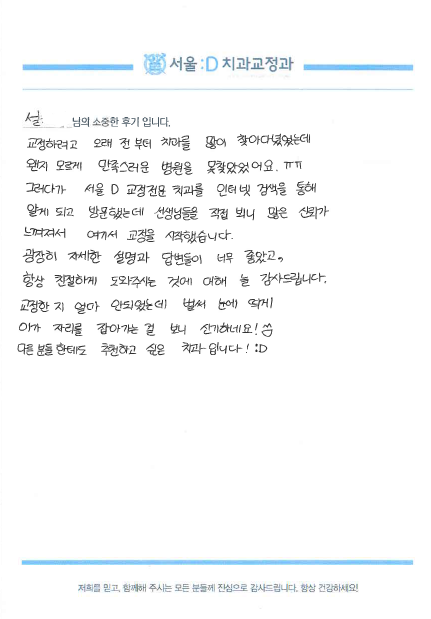 서울:D 치과교정과
설: 님의 소중한 후기 입니다.
교정하려고 오래 전부터 치과를 많이 찾아다녔었는데
왠지 모르게 만족스러운 병원을 못찾았었어요. ㅠㅠ
그러다가 서울 D 교정전문 치과를 인터넷 검색을 통해
알게 되고 방문했는데 선생님들을 직접 뵈니 많은 신뢰가
느껴져서 여기서 교정을 시작했습니다.
굉장히 자세한 설명과 답변들이 너무 좋았고,
항상 친절하게 도와주시는 것에 대해 늘 감사드립니다.
교정한 지 얼마 안되었는데 벌써 눈에 띄게
이가 자리를 잡아가는 걸 보니 신기하네요!
다른 분들한테도 추천하고 싶은 치과입니다! :D
저희를 믿고, 함께해 주시는 모든 분들께 진심으로 감사드립니다. 항상 건강하세요!